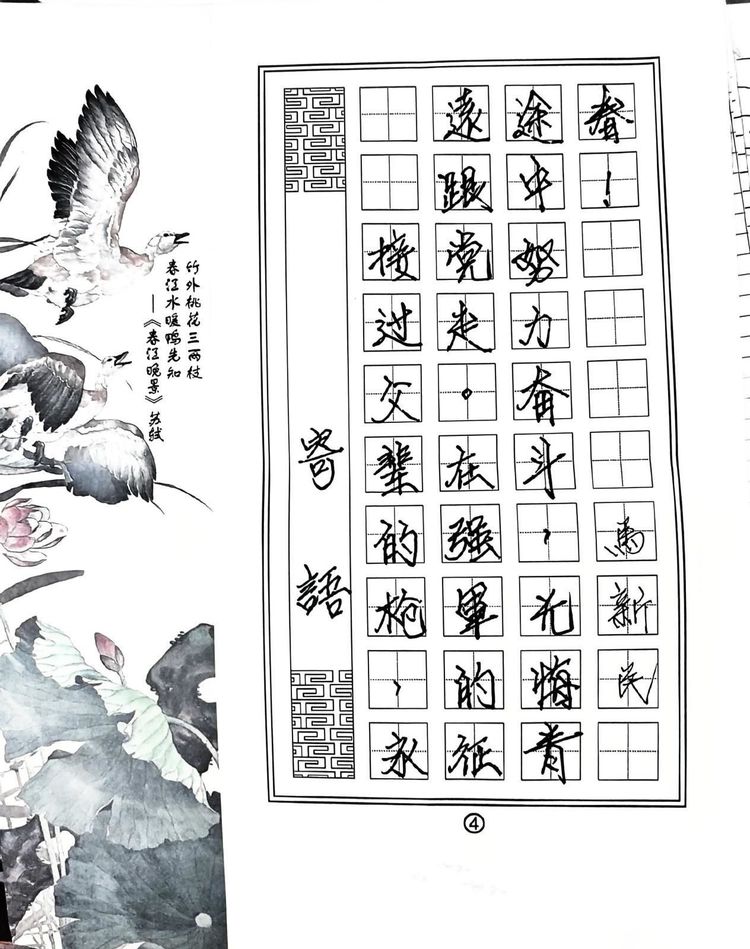 竹外桃花三两枝
春江水暖鸭先知
——《春江晚景》苏轼
寄語
接过父辈的枪，永
遠跟党走。在强軍的征
途中努力奋斗，无悔青
春！
馬新民
④